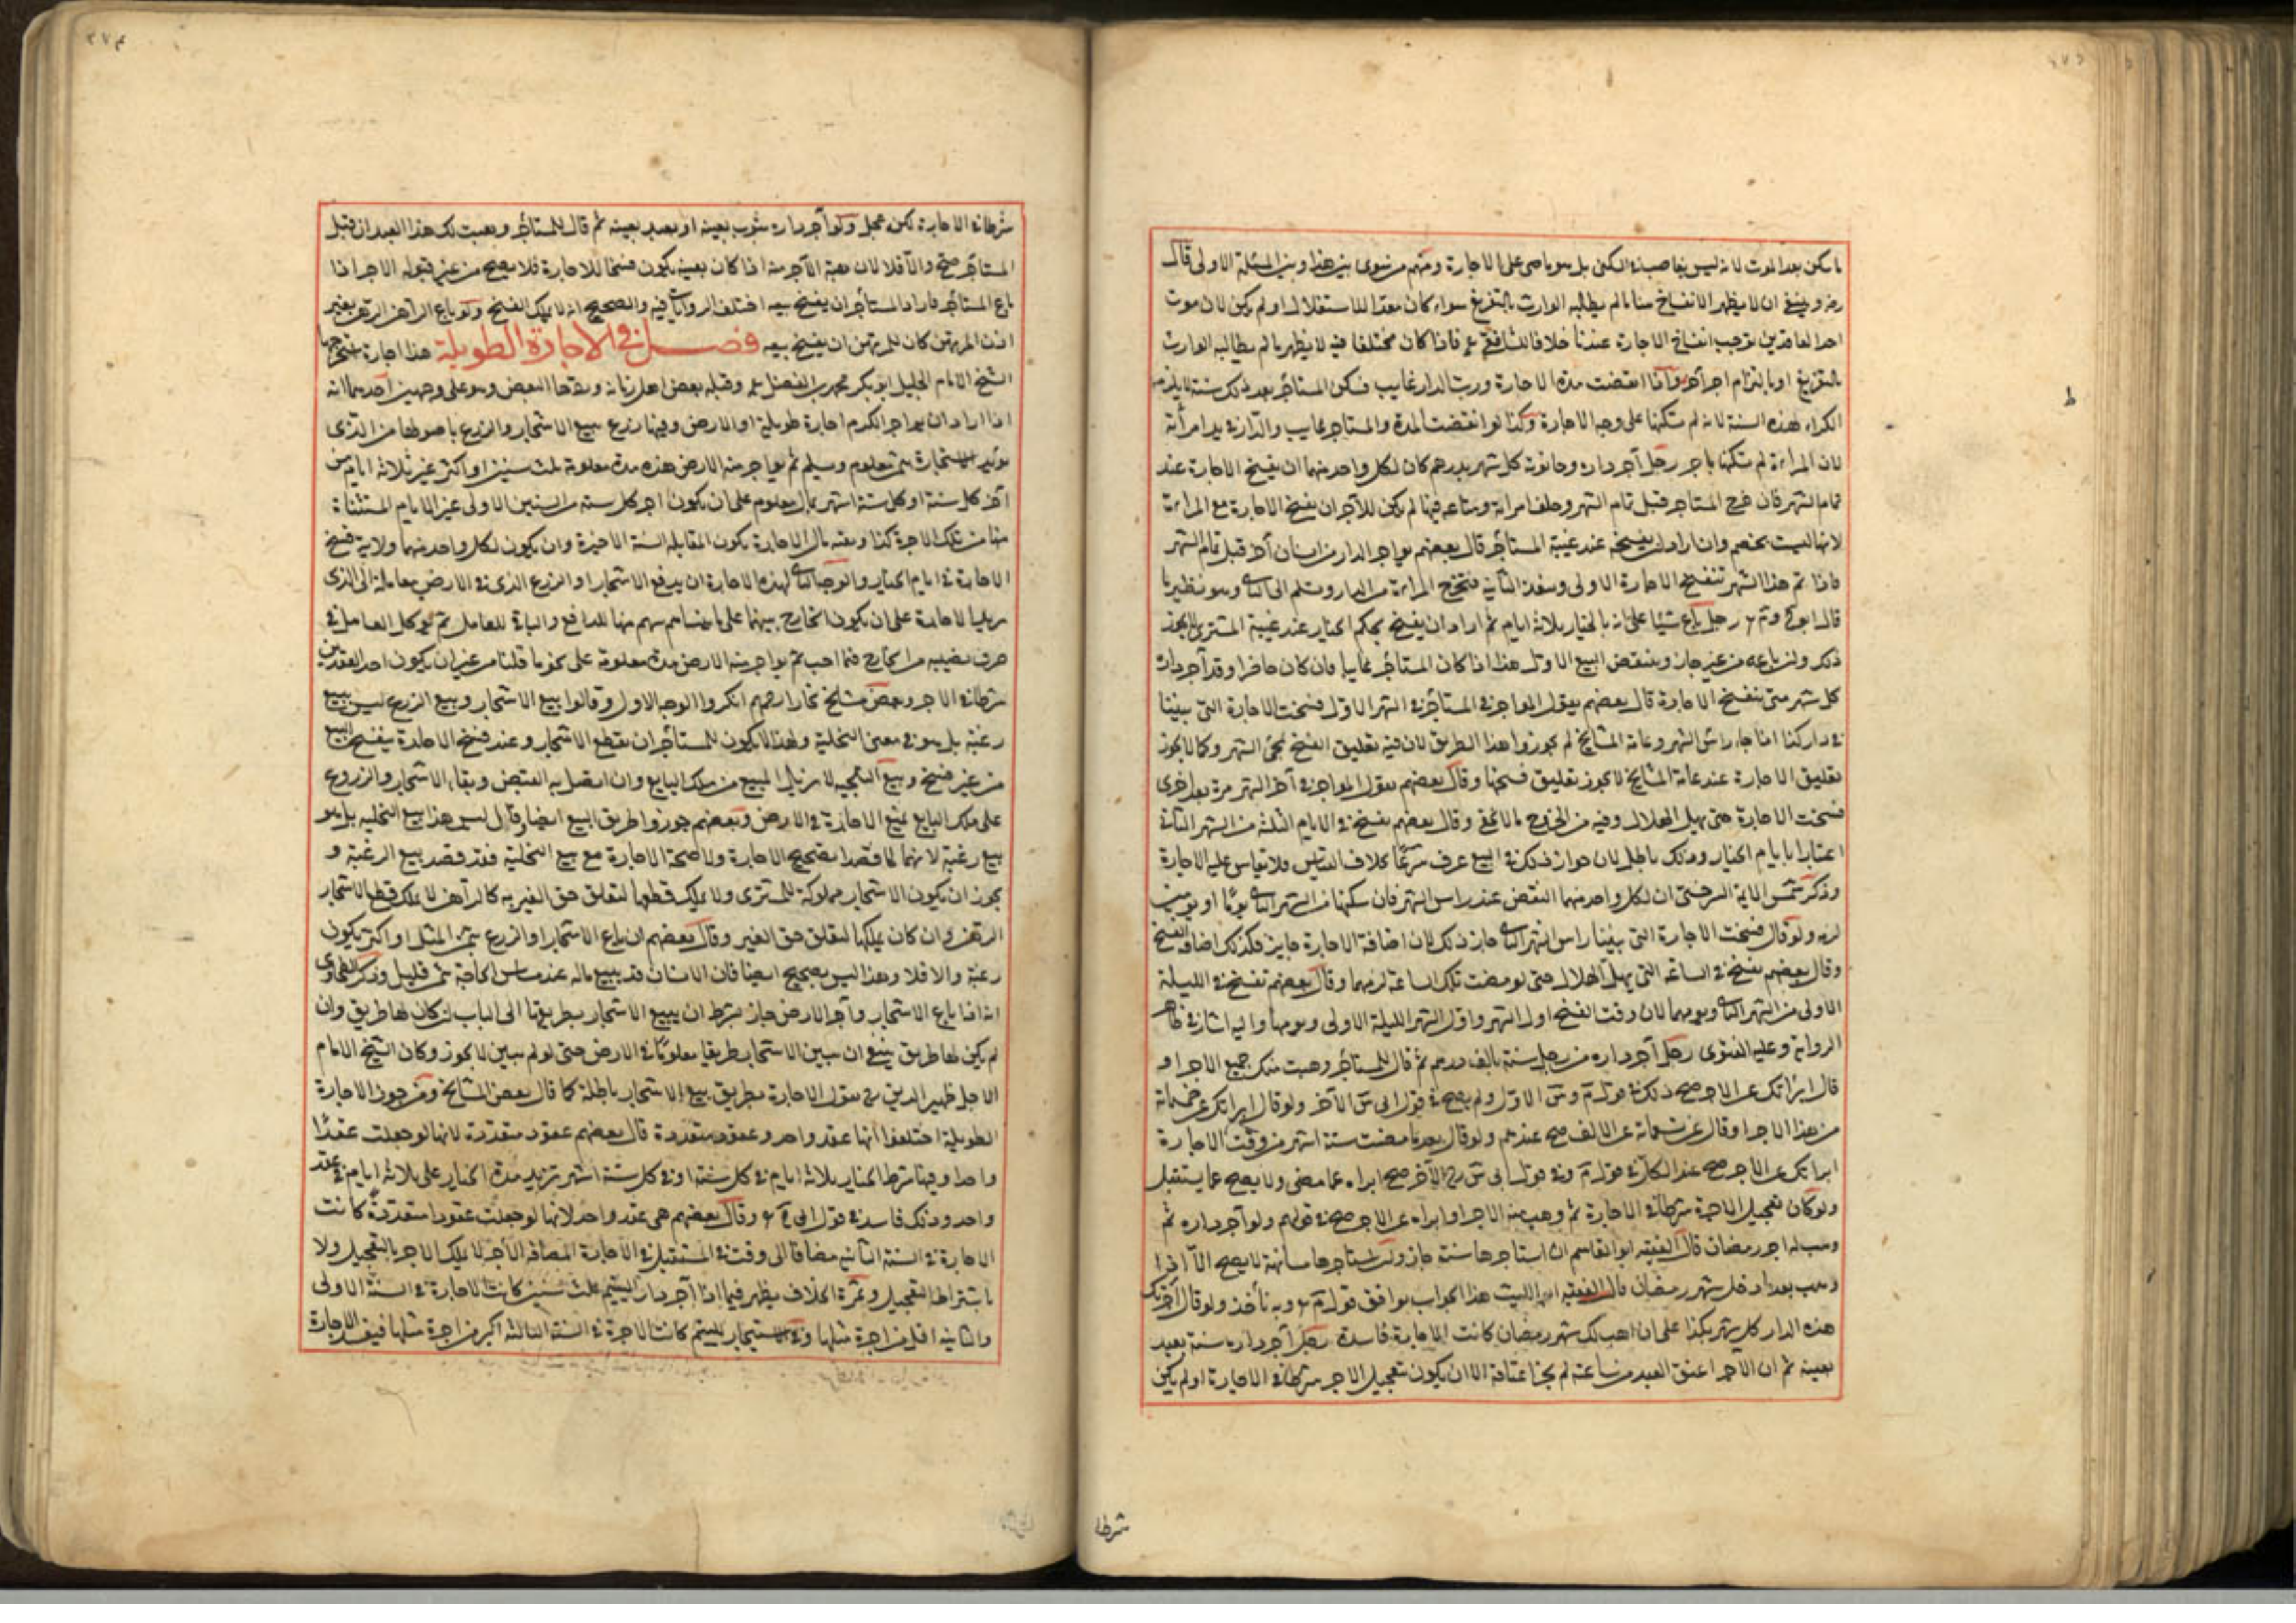 ما سكن بعد الموت لانه ليس بغاصب في السكنى بل هو ماض على الاجارة ومنهم من سوى بين هذا وبين المسئلة الاولى قال
رضه وينبغي ان لا يظهر الانفساخ هنا ما لم يطالبه الوارث بالتفريغ سواء كان معدا للاستغلال او لم يكن لان موت
احد العاقدين يوجب انفساخ الاجارة عندنا خلافا للشافعي فاذا كان مختلفا فيه لا يظهر ما لم يطالبه الوارث
بالتفريغ او بالتزام اجر آخر واذا انقضت مدة الاجارة ورب الدار غايب فسكن المستأجر بعد ذلك سنة لا يلزمه
الكراء لهذه السنة لانه لم يسكنها على وجه الاجارة وكذا لو انقضت المدة والمستاجر غايب والدار في يد امرأته
لان المراءة لم تسكنها باجر رجل آجر داره وحانوته كل شهر بدرهم كان لكل واحد منهما ان يفسخ الاجارة عند
تمام الشهر فان خرج المستاجر قبل تمام الشهر وخلف امراته ومتاعه فيها لم يكن للآجر ان يفسخ الاجارة مع المراءة
لانها ليست بخصم وان اراد ان يفسخه عند غيبة المستأجر قال بعضهم يواجر الدار من انسان آخر قبل تمام الشهر
فاذا تم هذا الشهر تنفسخ الاجارة الاولى وتنفذ الثانية فتخرج المراءة من الدار وتسلم الى الثاني وهو نظير ما
قال رجل باع شيئا على انه بالخيار ثلاثة ايام ثم اراد ان يفسخ بحكم الخيار عند غيبة المشتري لا يجوز
ذلك ولو باعه من غيره جاز وينتقض البيع الاول هذا اذا كان المستأجر غايبا فان كان حاضرا وقد آجر داره
كل شهر متى ينفسخ الاجارة قال بعضهم يقول المواجر في المستأجر في الشهر الاول فسخت الاجارة التي بيننا
في دار كذا اذا جاء راس الشهر وعامة المشايخ لم يجوزوا هذا الطريق لان فيه تعليق الفسخ بمجئ الشهر وكما لا يجوز
تعليق الاجارة عند عامة المشايخ لا يجوز تعليق فسخها وقال بعضهم يقول المواجر في آخر الشهر مرة بعد اخرى
فسخت الاجارة حتى يهل الهلال وفيه من الحرج ما لا يخفى وقال بعضهم يفسخ في الايام الثلثة من الشهر الثاني
اعتبارا بايام الخيار وذلك باطل لان جواز ذلك في البيع عرف شرعا بخلاف القياس فلا يقاس عليه الاجارة
وذكر شمس الايمة السرخسي ان لكل واحد منهما النقض عند راس الشهر فان سكنها من الشهر الثاني يوما او يومين
لزمه ولو قال فسخت الاجارة التي بيننا راس الشهر الثاني جاز ذلك لان اضافة الاجارة جايز فكذلك اضافة الفسخ
وقال بعضهم يفسخ في الساعة التي يهل الهلال حتى لو مضت تلك الساعة لزمهما وقال بعضهم تفسخ في الليلة
الاولى من الشهر الثاني ويومها لان وقت الفسخ اول الشهر واول الشهر الليلة الاولى ويومها واليه اشار في ظاهر
الرواية وعليه الفتوى رجل آجر داره من رجل سنة بالف درهم ثم قال للمستأجر وهبت منك جميع الاجر او
قال ابرأتك عن الاجر صح ذلك في قول الاول ولم يصح في قول ابي الآخر ولو قال ابرأتك عن خمسمائة
من هذا الاجر او قال عن تسعمائة عن الالف صح عندهم ولو قال بعد ما مضت ستة اشهر من وقت الاجارة
ابرأتك عن الاجر صح عن الكل في قول وفي قول ابي الآخر صح ابراءه عما مضى ولا يصح عما يستقبل
ولو كان تعجيل الاجرة شرطا في الاجارة ثم وهب منه الاجر او ابراه عن الاجر صح في قولهم ولو آجر داره ثم
وهب له اجر رمضان قال الفقيه ابو القاسم ان استاجرها سنة جاز ولو استاجرها مسانهة لا يصح الا اذا
وهب بعد ما دخل شهر رمضان قال الفقيه ابو الليث هذا الجواب يوافق قول وبه نأخذ ولو قال آجرتك
هذه الدار كل شهر بكذا على ان اهب لك شهر رمضان كانت الاجارة فاسدة رجل آجر داره سنة بعبد
بعينه ثم ان الآجر اعتق العبد من ساعته لم يجز اعتاقه الا ان يكون تعجيل الاجر شرطا في الاجارة او لم يكن
شرطا
شرطا في الاجارة لكن عجل ولو آجر داره بثوب بعينه او بعبد بعينه ثم قال للمستأجر وهبت لك هذا العبد ان قبل
المستأجر صح والا فلا لان هبة الاجر منه اذا كان بعينه يكون فسخا للاجارة فلا يصح من غير قبوله الاجر اذا
باع المستأجر فاراد المستأجر ان يفسخ بيعه اختلف الروايات فيه والصحيح انه لا يملك الفسخ ولو باع الراهن الرهن بغير
اذن المرتهن كان للمرتهن ان يفسخ بيعه فصل في الاجارة الطويلة هذا اجارة استخرجها
الشيخ الامام الجليل ابو بكر محمد بن الفضل وقبله بعض اهل زمانه وردها البعض وهو على وجهين احدهما انه
اذا اراد ان يواجر الكرم اجارة طويلة او الارض وفيها زرع يبيع الاشجار والزرع باصولها من الذي
يريد الاستيجارة بثمن معلوم وسلم ثم يواجر منه الارض هذه مدة معلومة ثلث سنين او اكثر غير ثلاثة ايام من
آخر كل سنة او كل ستة اشهر بمال معلوم على ان يكون اجر كل سنة من السنين الاولى غير الايام المستثناة
منها من تلك الاجرة كذا وبقية مال الاجارة يكون المقابلة السنة الاخيرة وان يكون لكل واحد منهما ولاية فسخ
الاجارة في ايام الخيار والوجه الثاني لهذه الاجارة ان يدفع الاشجار او الزرع الذي في الارض معاملة الى الذي
يريد الاجارة على ان يكون الخارج بينهما على مائة سهم سهم منها للدافع والباقي للعامل ثم يوكل العامل في
صرف نصيبه من الخارج فيما احب ثم يواجر منه الارض مدة معلومة على نحو ما قلنا من غير ان يكون احد العقدين
شرطا في الآخر وبعض مشايخ بخارا رحمهم انكروا الوجه الاول وقالوا بيع الاشجار وبيع الزرع ليس ببيع
رغبة بل هو في معنى التخلية ولهذا لا يكون للمستأجر ان يقطع الاشجار وعند فسخ الاجارة ينفسخ البيع
من غير فسخ وبيع التلجيه لا يزيل المبيع من ملك البايع وان اتصل به القبض وبقاء الاشجار والزروع
على ملك البايع يمنع الاجارة في الارض وبعضهم جوزوا طريق البيع ايضا وقال ليس هذا بيع التخليه بل هو
بيع رغبة لانهما لما قصدا تصحيح الاجارة ولا صحة الاجارة مع بيع التخلية فقد قصد بيع الرغبة و
يجوز ان يكون الاشجار مملوكة للمشتري ولا يملك قطعها لتعلق حق الغير به كالراهن لا يملك قطع الاشجار
الرهن وان كان يملكها لتعلق حق الغير وقال بعضهم ان باع الاشجار او الزرع بثمن المثل او اكثر يكون
رغبة والا فلا وهذا ليس بصحيح ايضا فان الانسان قد يبيع ماله عند مساس الحاجة بثمن قليل وذكر الطحاوي
انه اذا باع الاشجار وآجر الارض جاز بشرط ان يبيع الاشجار بطريقها الى الباب ان كان لها طريق وان
لم يكن لها طريق ينبغي ان يبين الاشجار طريقا معلوما في الارض حتى لو لم يبين لا يجوز وكان الشيخ الامام
الاجل ظهير الدين يقول الاجارة بطريق بيع الاشجار باطلة كما قال بعض المشايخ ومن جوز الاجارة
الطويلة اختلفوا انها عقد واحد وعقود متعددة قال بعضهم عقود متعددة لانها لو جعلت عقدا
واحدا وفيها شرط الخيار ثلاثة ايام في كل سنة او في كل ستة اشهر تزيد مدة الخيار على ثلاثة ايام في عقد
واحد وذلك فاسد في قول ابي وقال بعضهم هي عقد واحد لانها لو جعلت عقودا متعددة كانت
الاجارة في السنة الثانية مضافا الى وقت في المستقبل في الاجارة المضافة الآجر لا يملك الاجر بالتعجيل ولا
باشتراط التعجيل وثمرة الخلاف يظهر فيما اذا آجر دار اليتيم ثلث سنين كانت الاجارة في السنة الاولى
والثانية اقل من اجرة مثلها وفي استيجار لليتيم كانت الاجرة في السنة الثالثة اكثر من اجرة مثلها فيفسد الاجارة